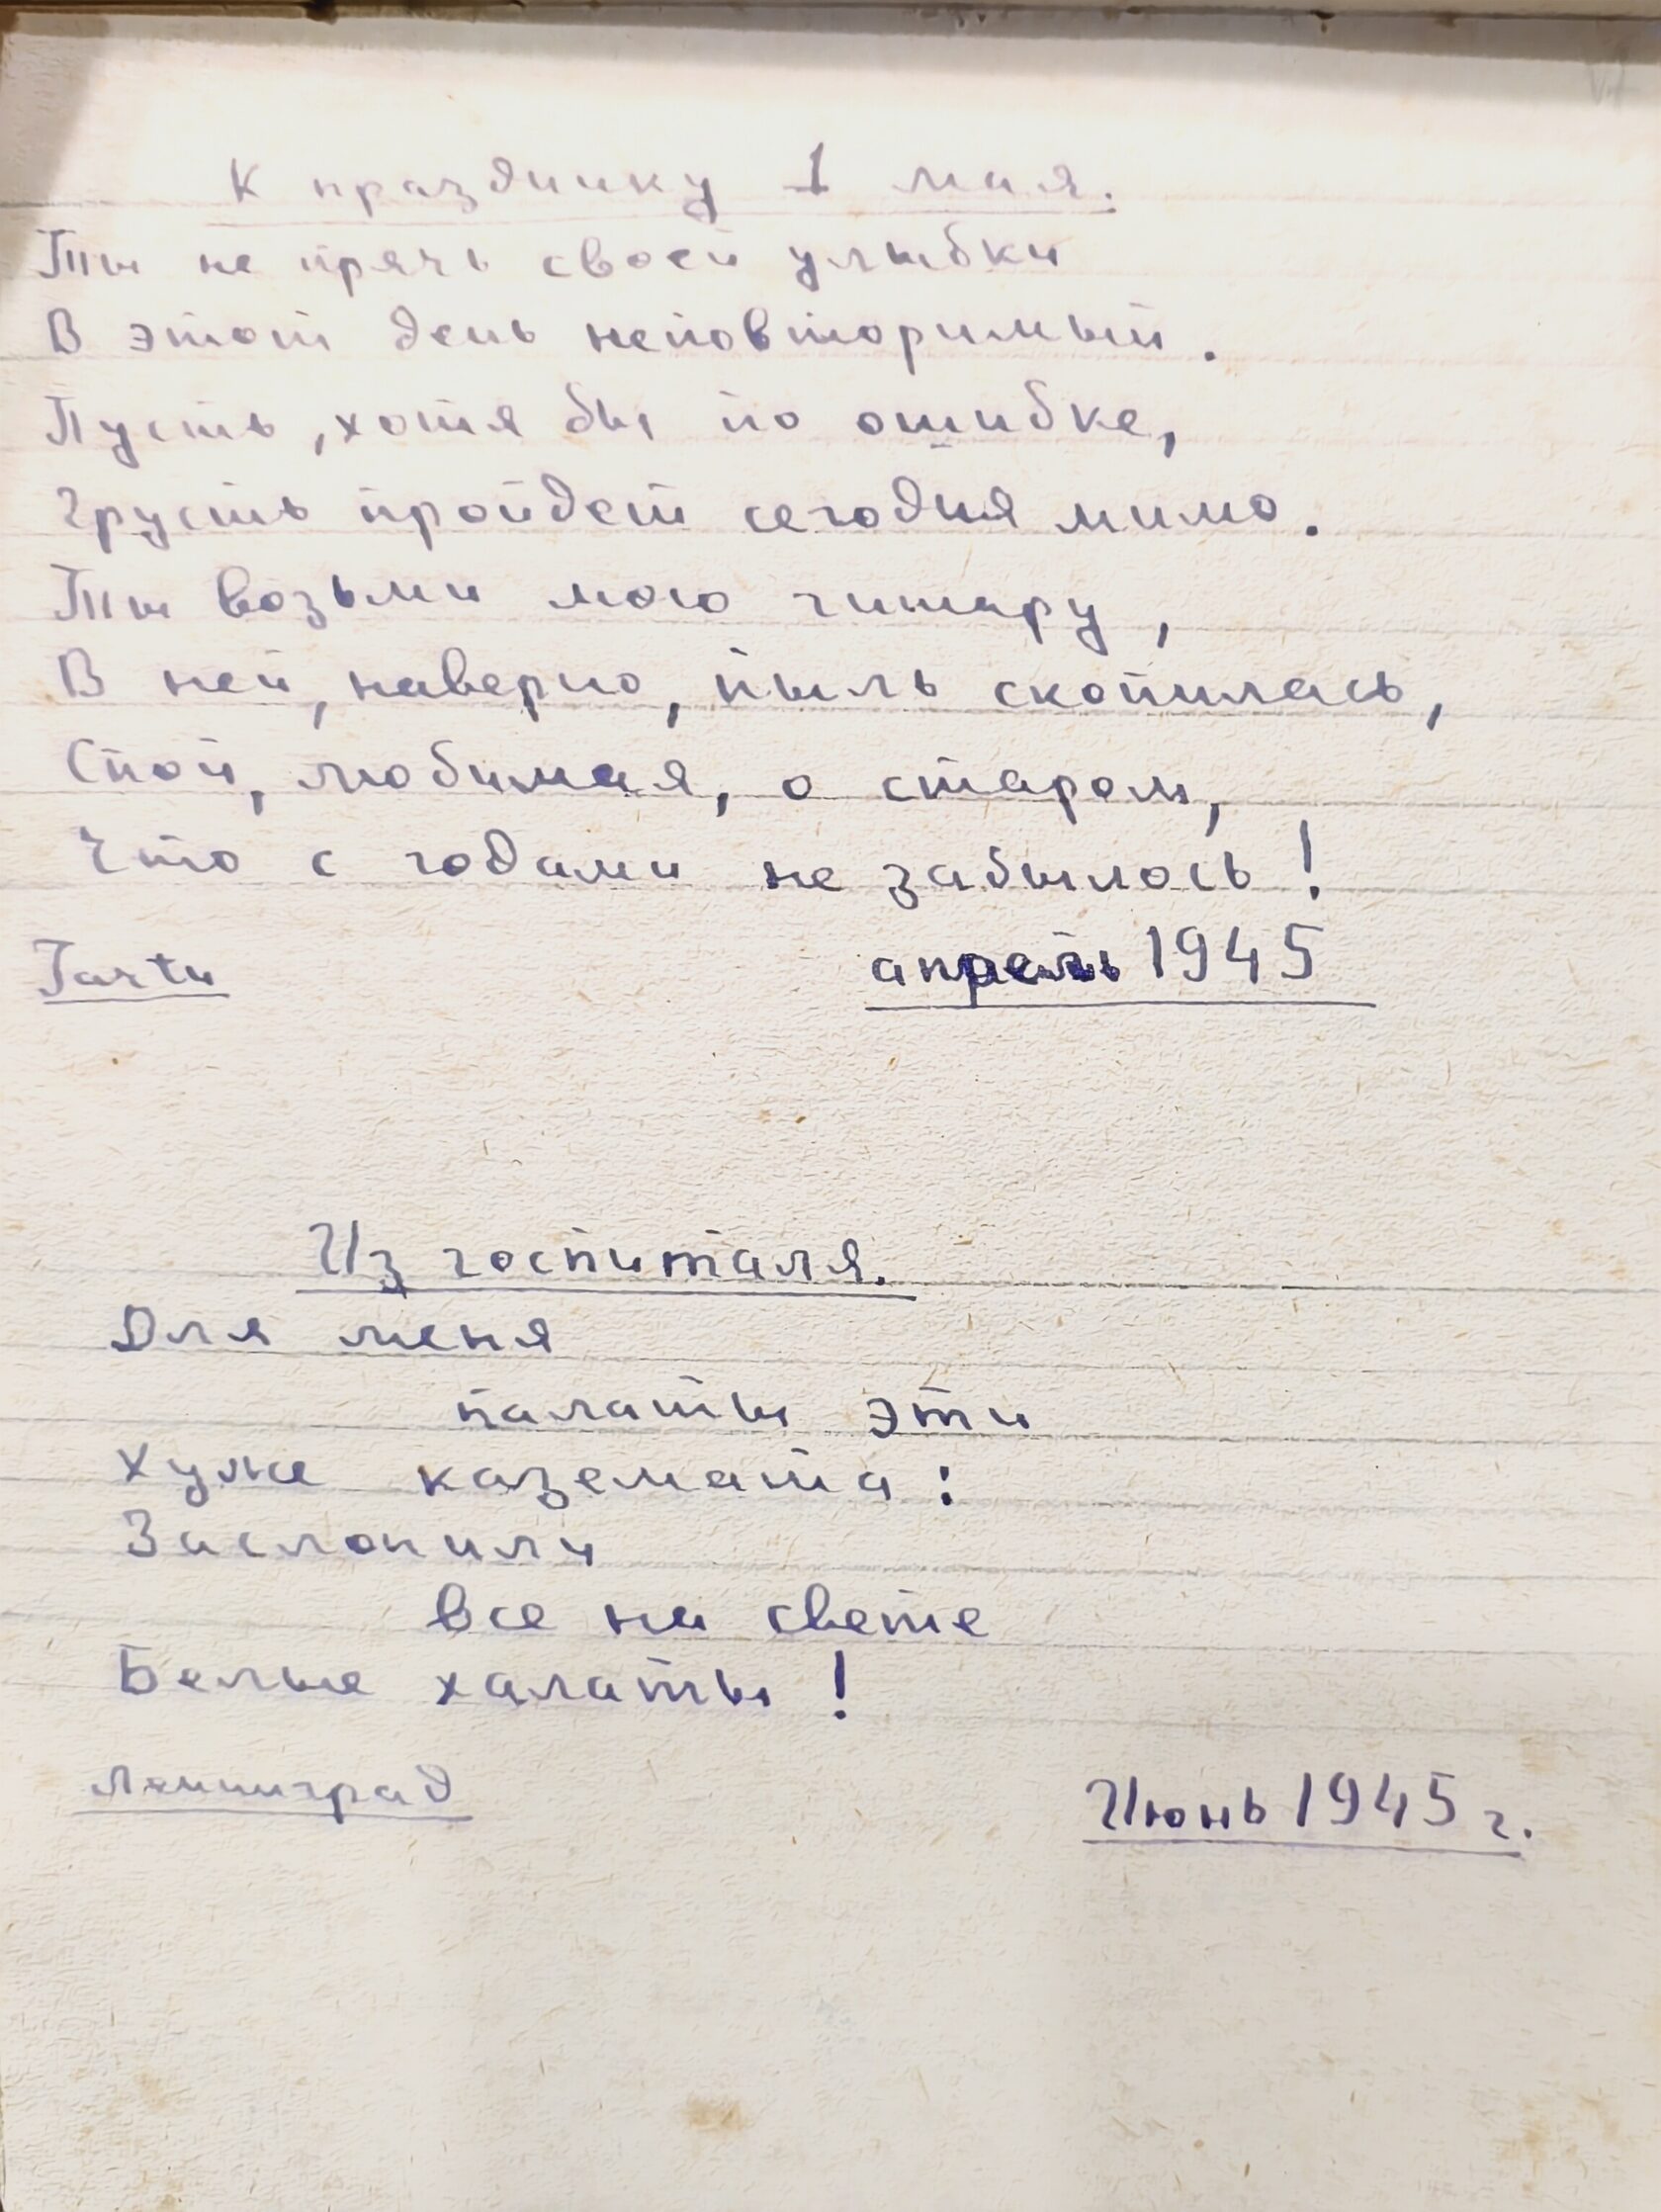 К празднику 1 мая.
Ты не прячь своей улыбки
В этот день неповторимый.
Пусть, хотя бы по ошибке,
Грусть пройдет сегодня мимо.
Ты возьми мою гитару,
В ней, наверно, пыль скопилась,
Спой, любимая, о старом,
Что с годами не забылось!
Tartu апрель 1945
Из госпиталя.
Для меня
палаты эти
Хуже каземата:
Заслонили
все на свете
Белые халаты!
Ленинград Июнь 1945 г.